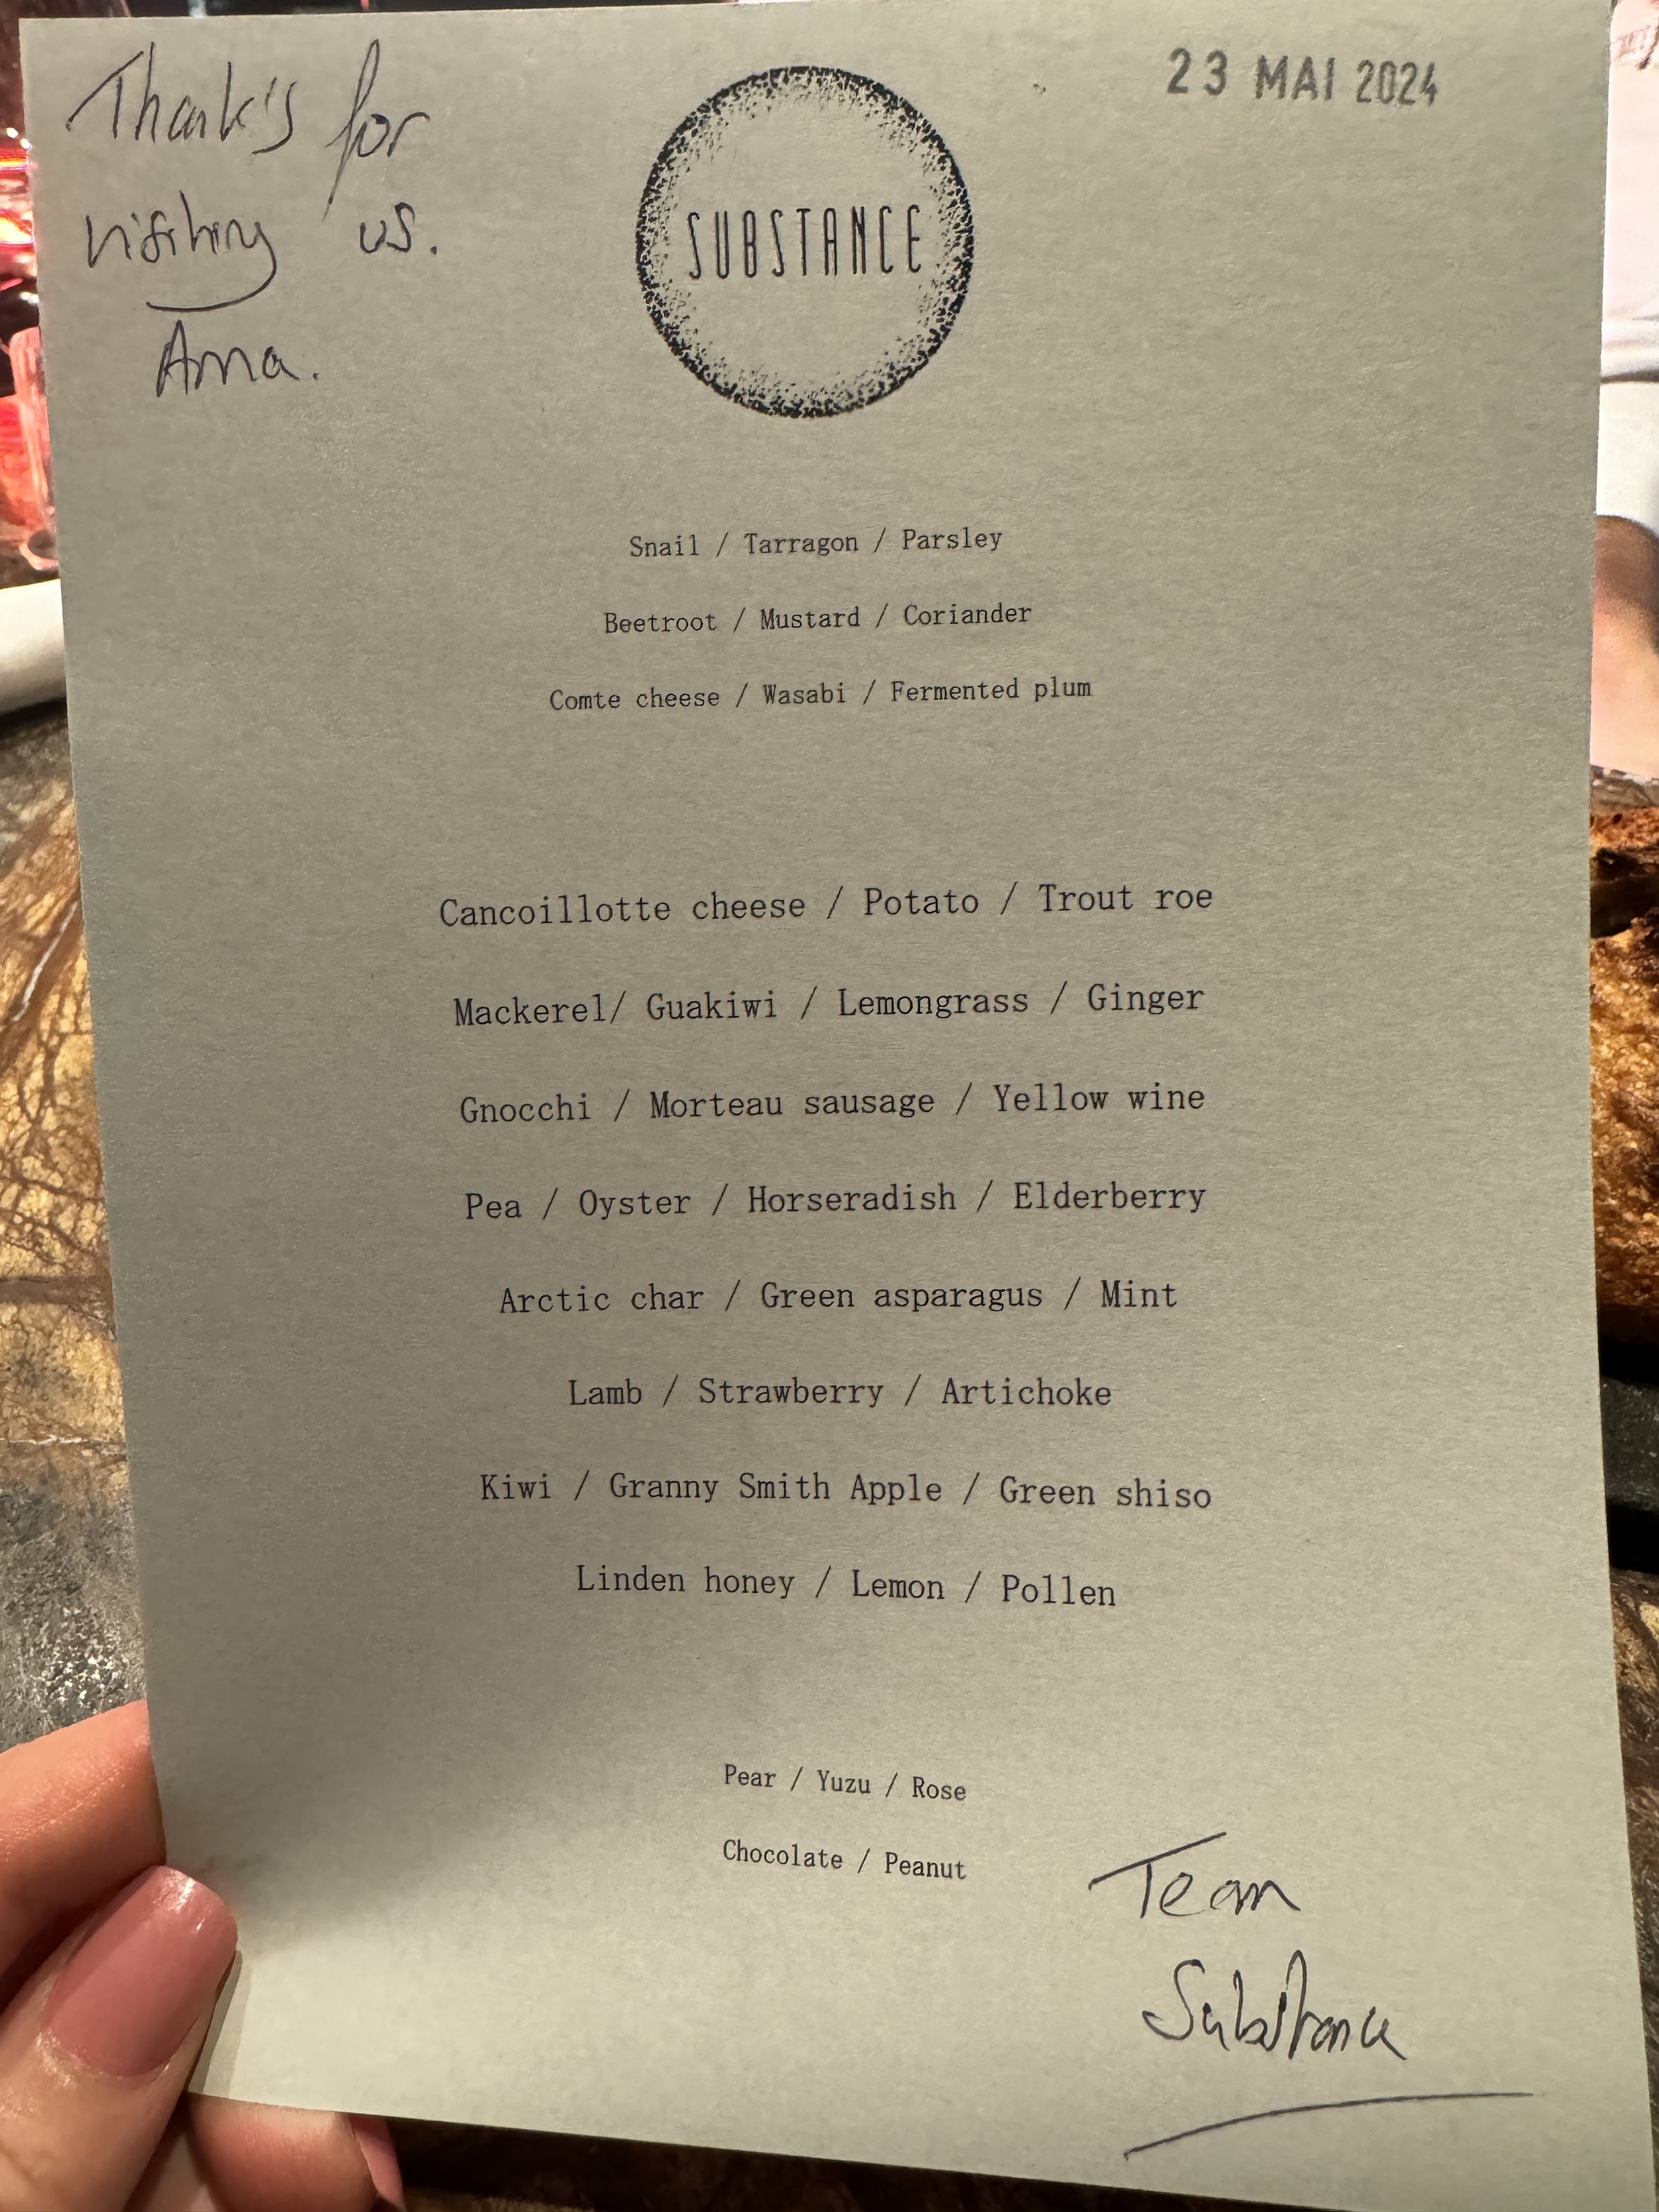 Thank's for
visiting us.
Anna.
23 MAI 2024
SUBSTANCE
Snail / Tarragon / Parsley
Beetroot / Mustard / Coriander
Comte cheese / Wasabi / Fermented plum
Cancoillotte cheese / Potato / Trout roe
Mackerel/ Guakiwi / Lemongrass / Ginger
Gnocchi / Morteau sausage / Yellow wine
Pea / Oyster / Horseradish / Elderberry
Arctic char / Green asparagus / Mint
Lamb / Strawberry / Artichoke
Kiwi / Granny Smith Apple / Green shiso
Linden honey / Lemon / Pollen
Pear / Yuzu / Rose
Chocolate / Peanut
Team
Substance